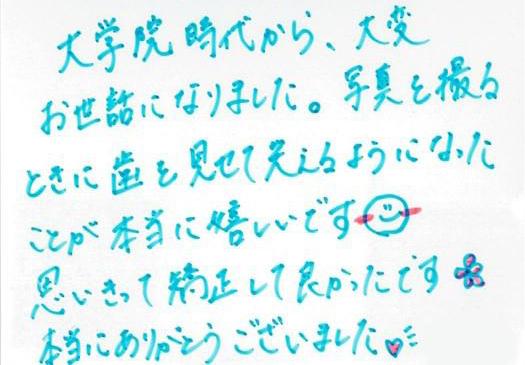 大学院時代から、大変
お世話になりました。写真を撮る
ときに歯を見せて笑えるようになった
ことが本当に嬉しいです
思いきって矯正して良かったです
本当にありがとうございました